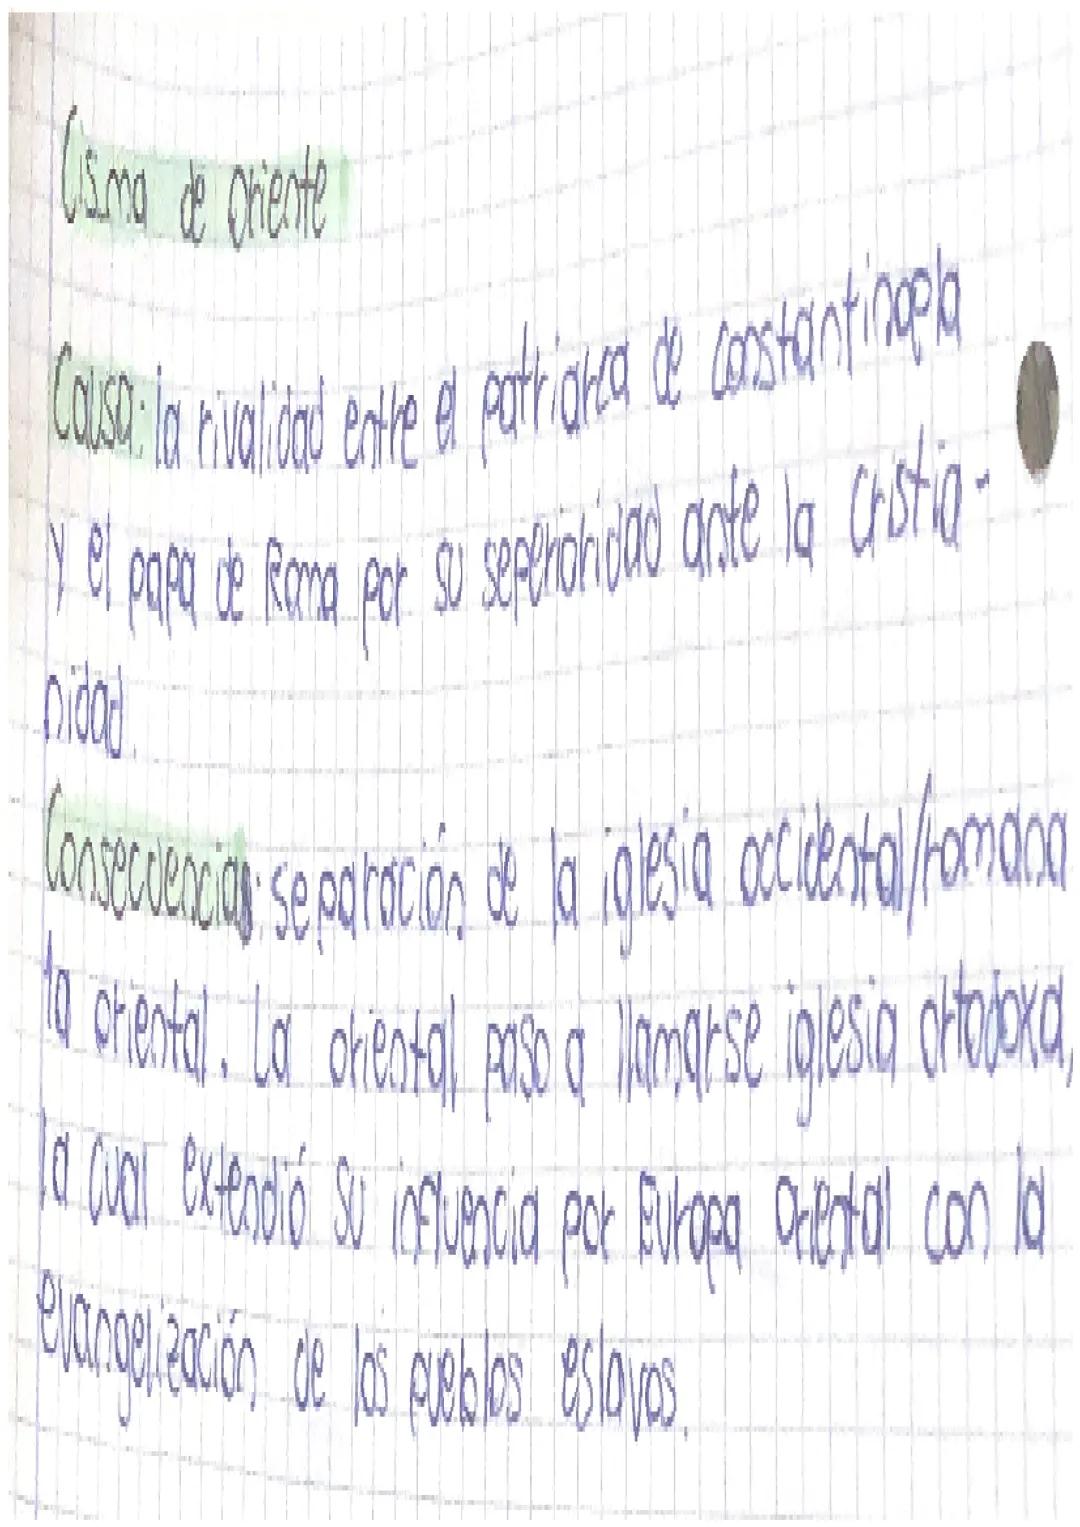 Cisma de Oriente
Causa: la rivalidad entre el patriarca de constantinopla
y el papa de Roma por su seperioridad ante la cristia-
nidad.
Consecuencias: separación de la iglesia occidental/romana
la oriental. La oriental paso a llamarse iglesia ortodoxa,
la cual extendió su influencia por Europa Oriental con la
evangelización de los pueblos eslavos.